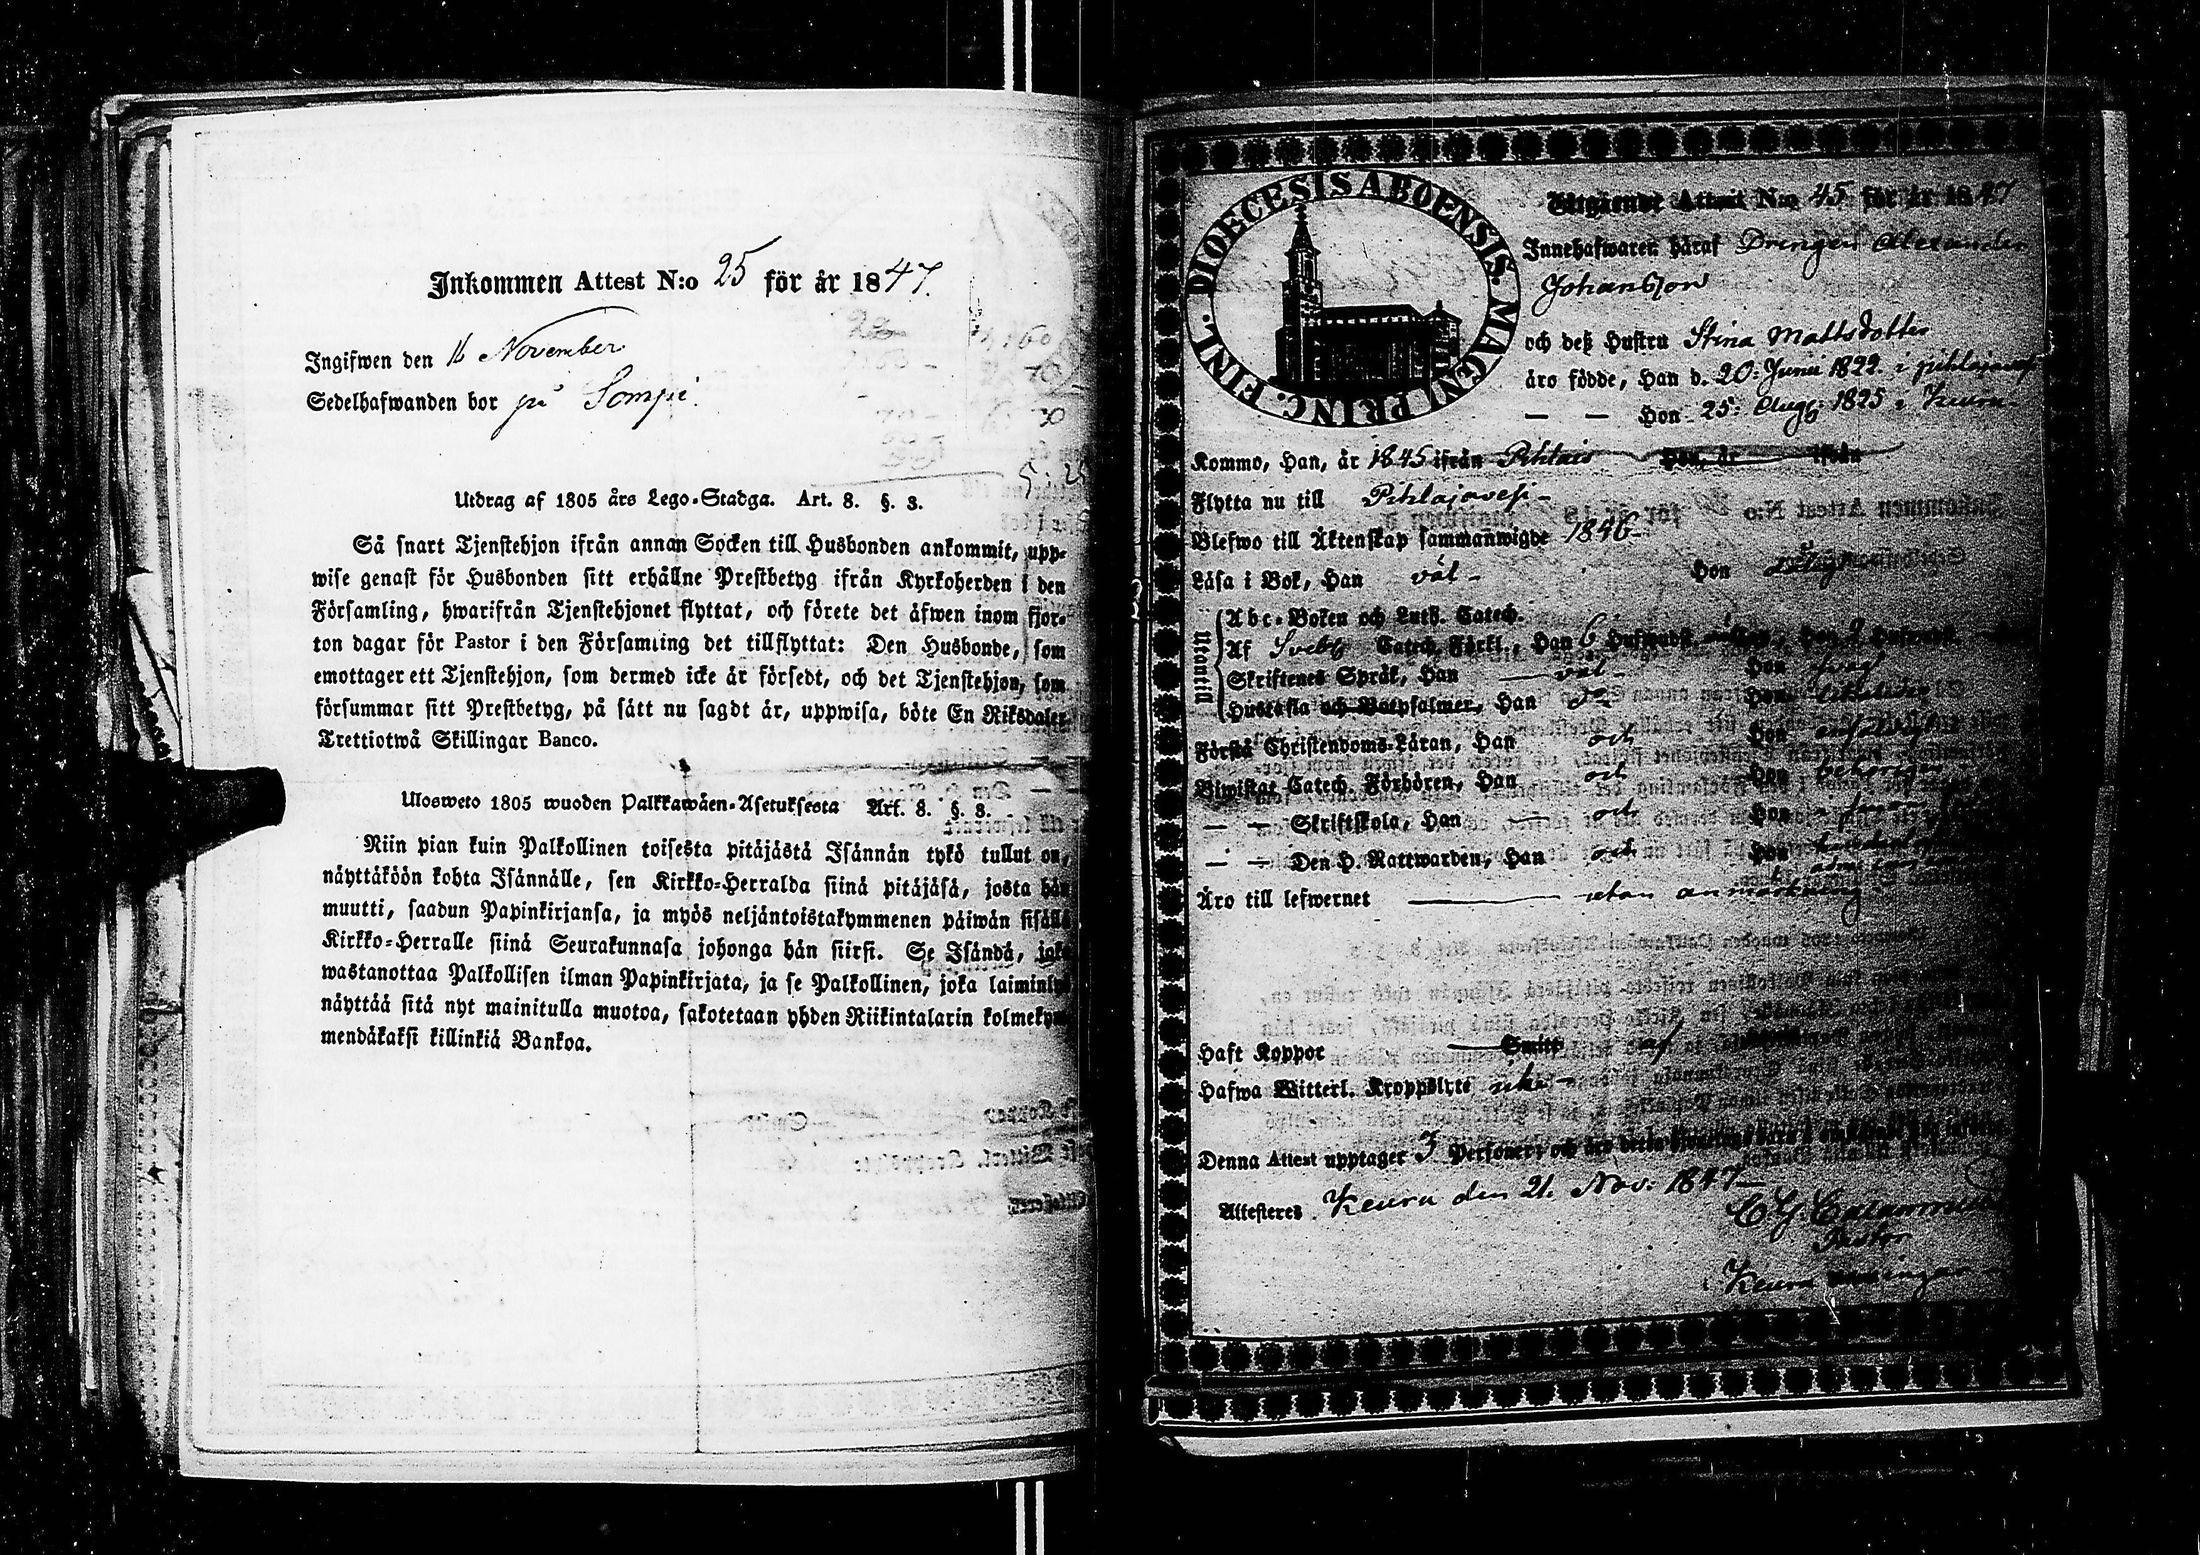 Inkommen Attest N:o 25 för år 1847.
Ingifwen den 16 November
Sedelhafwanden bor på Sompi.
Utdrag af 1805 års Lego-Stadga. Art. 8. §. 3.
Så snart Tjenstehjon ifrån annan Socken till Husbonden ankommit, upp-
wise genast för Husbonden sitt erhållne Prestbetyg ifrån Kyrkoherden i den
Församling, hwarifrån Tjenstehjonet flyttat, och förete det äfwen inom fjor-
ton dagar för Pastor i den Församling det tillflyttat: Den Husbonde, som
emottager ett Tjenstehjon, som dermed icke är försedt, och det Tjenstehjon, som
försummar sitt Prestbetyg, på sätt nu sagdt är, uppwisa, böte En Riksdaler
Trettiotwå Skillingar Banco.
Ulosweto 1805 wuoden Palkkawäen-Asetuksesta Art. 8. §. 3.
Niin pian kuin Palkollinen toisesta pitäjästä Isännän tykö tullut on,
näyttäköön kohta Isännälle, sen Kirkko-Herralda siinä pitäjäsä, josta hän
muutti, saadun Papinkirjansa, ja myös neljäntoistakymmenen päiwän sisällä
Kirkko-Herralle siinä Seurakunnasa johonga hän siirsi. Se Isändä, joka
wastanottaa Palkollisen ilman Papinkirjata, ja se Palkollinen, joka laiminlyö
näyttää sitä nyt mainitulla muotoa, sakotetaan yhden Riikintalarin kolmekym-
mendäkaksi killinkiä Bankoa.
DIOECESIS ABOENSIS. MAGNI PRINC. FINL.
Utgående Attest N:o 45 för år 1847
Innehafwaren häraf Drengen Alexander
Johansson
och deß Hustru Stina Mattsdotter
äro födde, Han d. 20: Junii 1822. i Pihlajavesi
— — Hon 25: Augg: 1825 i Keuru
Kommo, Han, år 1845 ifrån Pihlais Hon, år ifrån
Flytta nu till Pihlajavesi
Blefwo till Äktenskap sammanwigde 1846
Läsa i Bok, Han väl Hon
Utantill
Abc-Boken och Luth. Catech.
Af Svebg Catech. Förkl., Han 6 Hufwudst. Hon 2 Hufwudst.
Skriftenes Språk, Han väl Hon svag
Hustafla och Botpsalmer, Han Hon
Förstå Christendoms-Läran, Han och Hon
Biwistat Catech. Förhören, Han och Hon behörigen
— — Skriftskola, Han och Hon
— — Den H. Nattwarden, Han och Hon
Äro till lefwernet utan anmärkning
Haft Koppor Smitt af
Hafwa Witterl. Kroppslyte icke
Denna Attest upptager 3 Personer, och
Attesteres Keuru den 21. Nov: 1847
C G Calamnius
Pastor
Keuru